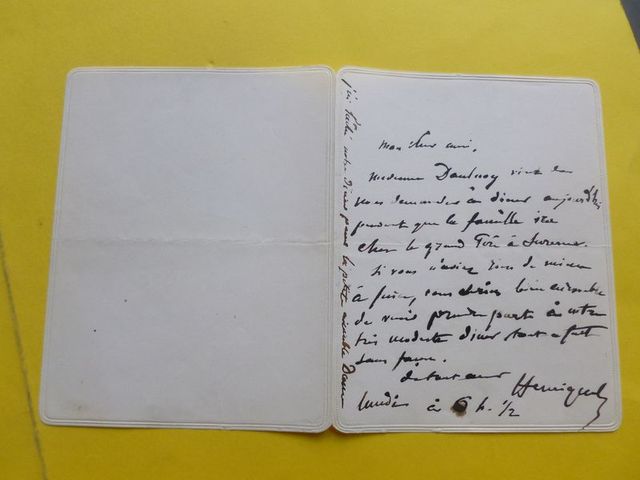 mon cher ami,
madame Daulnoy vient de
vous demander à diner aujourd'hui
pendant que la famille ira
chez le grand à Suresnes.
Si vous n'aviez rien de mieux
à faire, vous seriez bien aimable
de venir prendre part à notre
très modeste diner tout à fait
sans façon.
à tout
Henriquel
lundi à 6 h. 1/2
j'ai votre diner pour la petite aimable